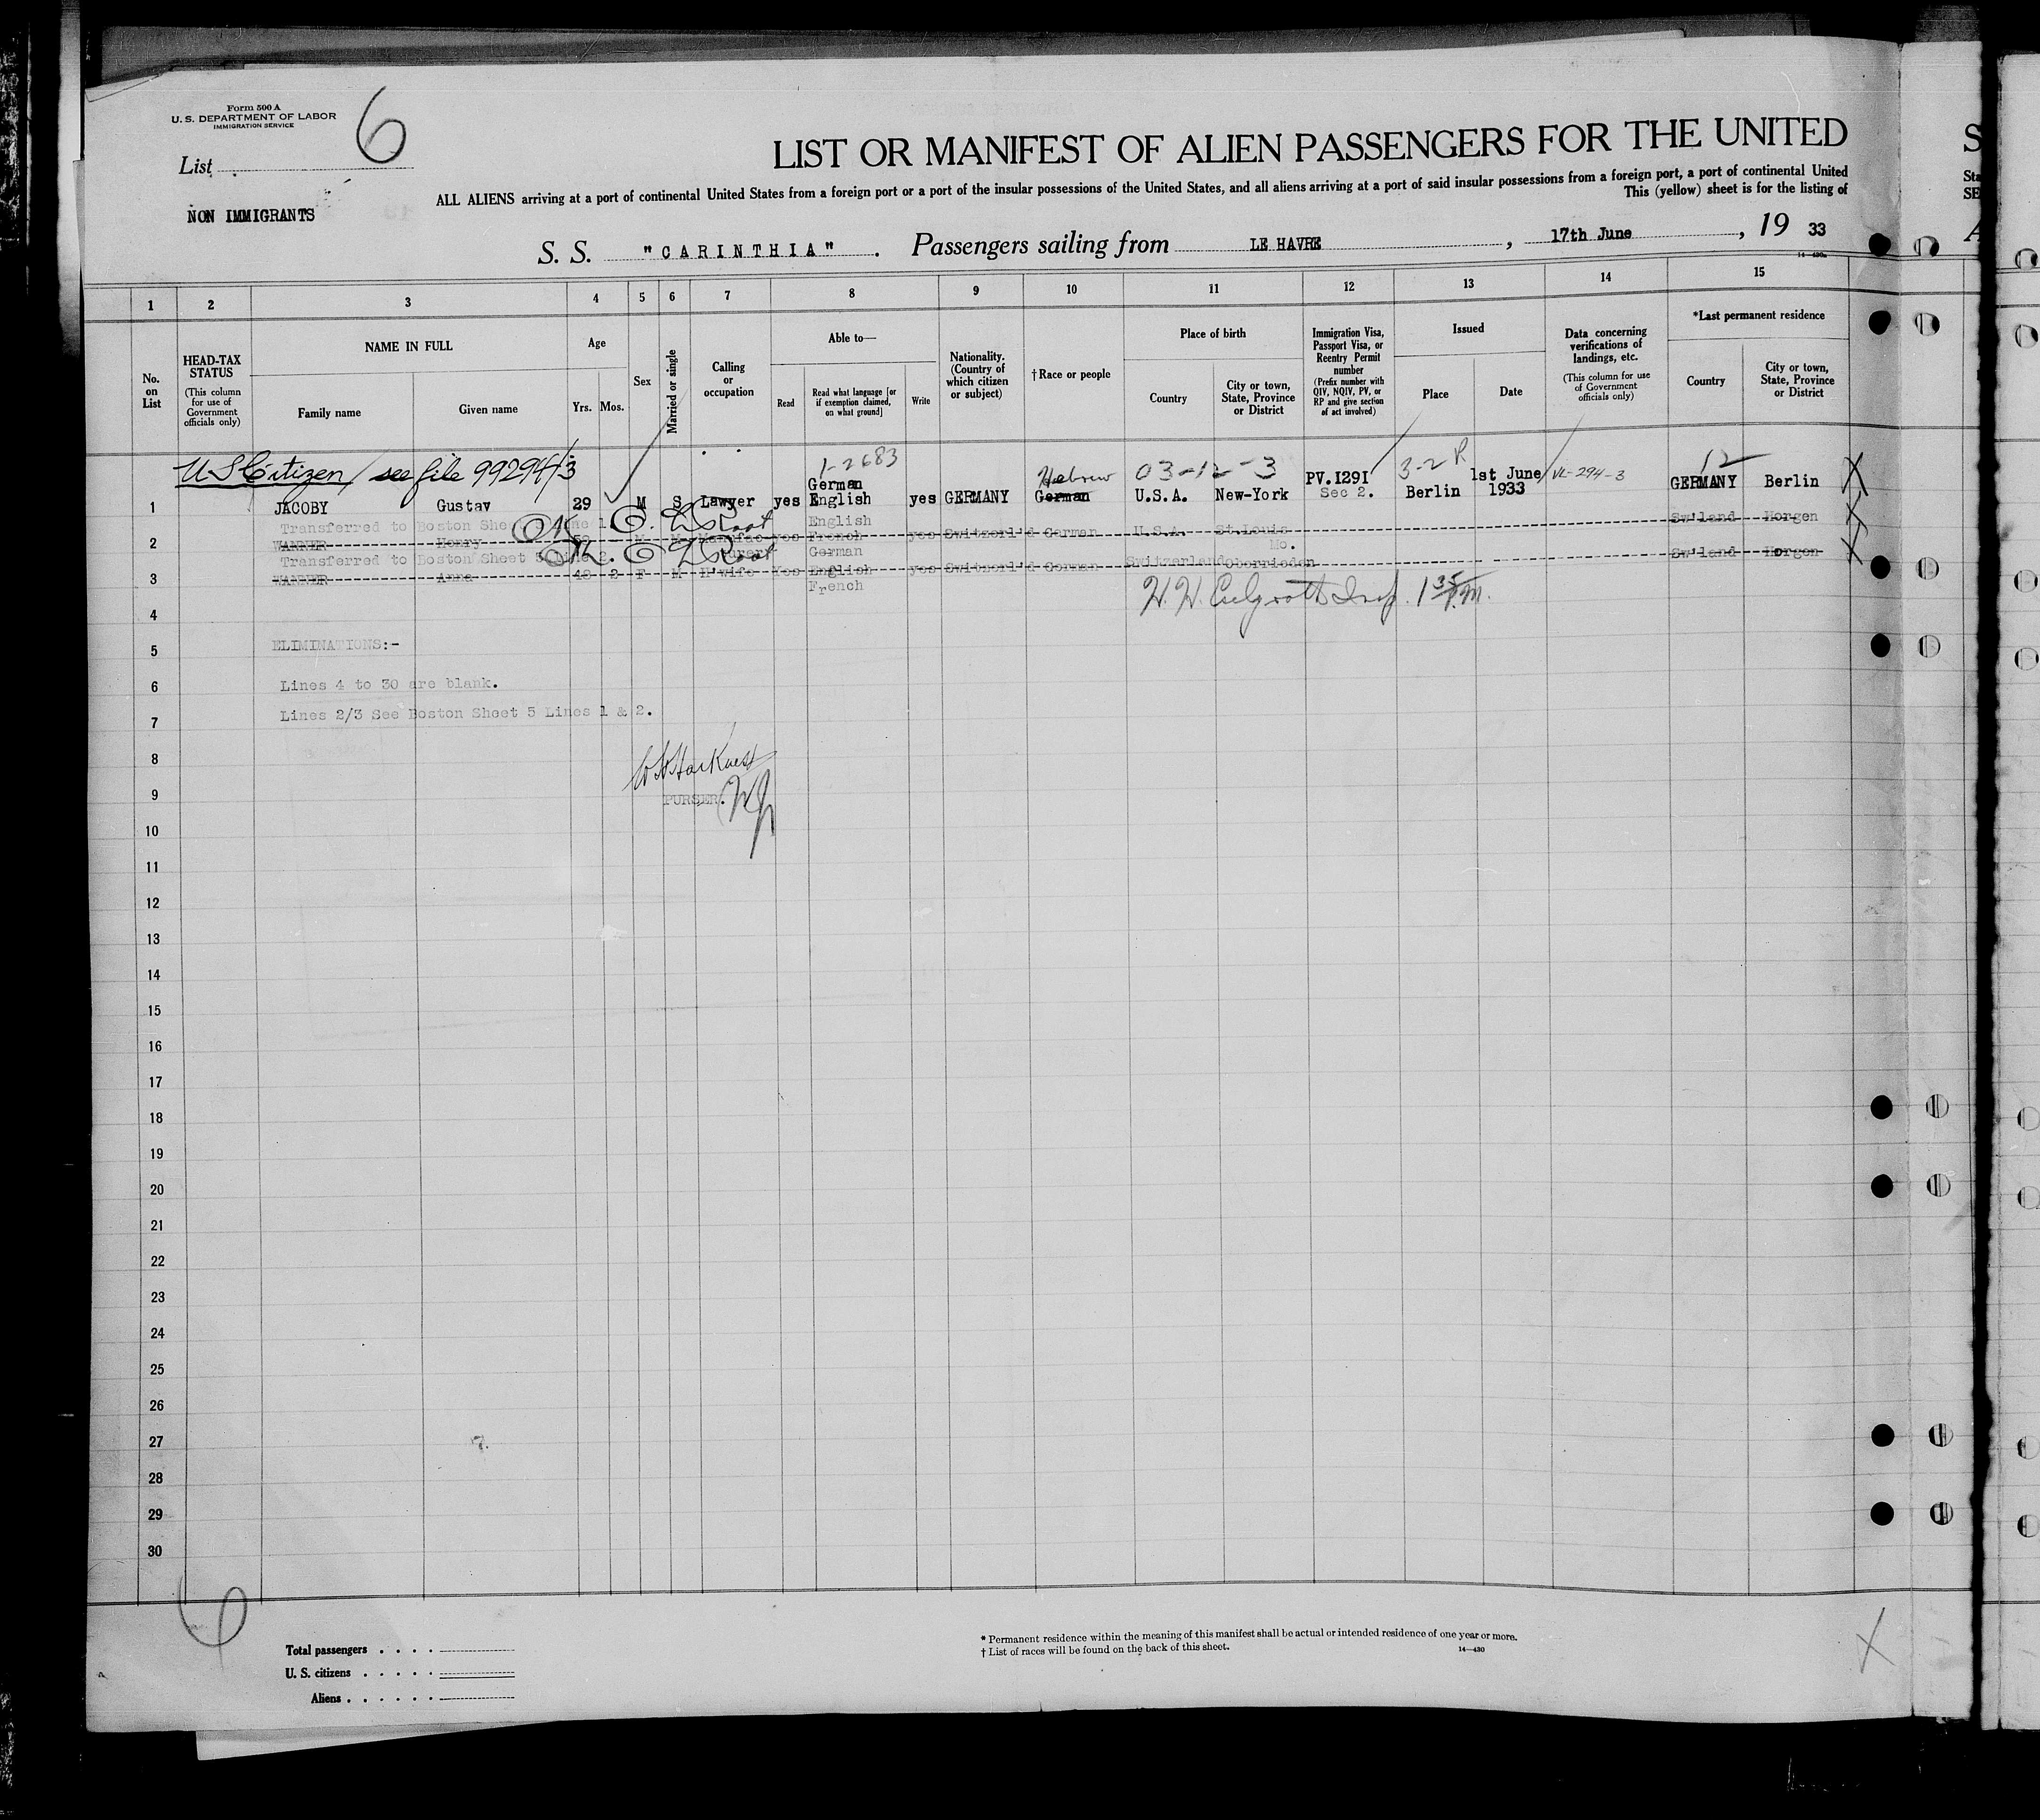 Form 500 A
U. S. DEPARTMENT OF LABOR
IMMIGRATION SERVICE
6
List
NON IMMIGRANTS
LIST OR MANIFEST OF ALIEN PASSENGERS FOR THE UNITED
ALL ALIENS arriving at a port of continental United States from a foreign port or a port of the insular possessions of the United States, and all aliens arriving at a port of said insular possessions from a foreign port, a port of continental United
This (yellow) sheet is for the listing of
S. S. "CARINTHIA". Passengers sailing from LE HAVRE, 17th June, 19 33
1 2 3 4 5 6 7 8 9 10 11 12 13 14 15
No. on List
HEAD-TAX STATUS (This column for use of Government officials only)
NAME IN FULL
Family name
Given name
Age
Yrs.
Mos.
Sex
Married or single
Calling or occupation
Able to—
Read
Read what language [or if exemption claimed, on what ground]
Write
Nationality. (Country of which citizen or subject)
†Race or people
Place of birth
Country
City or town, State, Province or District
Immigration Visa, Passport Visa, or Reentry Permit number (Prefix number with QIV, NQIV, PV, or RP and give section of act involved)
Issued
Place
Date
Data concerning verifications of landings, etc. (This column for use of Government officials only)
*Last permanent residence
Country
City or town, State, Province or District
US Citizen / see file 99294/3
1-2683
03-12-3
3-2 R
VL-294-3
12
1 JACOBY Gustav 29 M S Lawyer yes German English yes GERMANY German Hebrew U.S.A. New-York PV.1291 Sec 2. Berlin 1st June 1933 GERMANY Berlin
Transferred to Boston She 1.
2 WANNER Henry M M Manufacturer yes English French German yes Switzerl'd German U.S.A. St.Louis Mo. Sw'land Horgen
Transferred to Boston Sheet 5 2.
3 WANNER Anna 2 F M H'wife Yes English French yes Switzerl'd German Switzerland Oberrieden Sw'land Horgen
Insp. 1 35 P.M.
4
5 ELIMINATIONS:-
6 Lines 4 to 30 are blank.
7 Lines 2/3 See Boston Sheet 5 Lines 1 & 2.
8
9 PURSER.
10
11
12
13
14
15
16
17
18
19
20
21
22
23
24
25
26
27
28
29
30
6
Total passengers
U. S. citizens
Aliens
* Permanent residence within the meaning of this manifest shall be actual or intended residence of one year or more.
† List of races will be found on the back of this sheet.
14—430